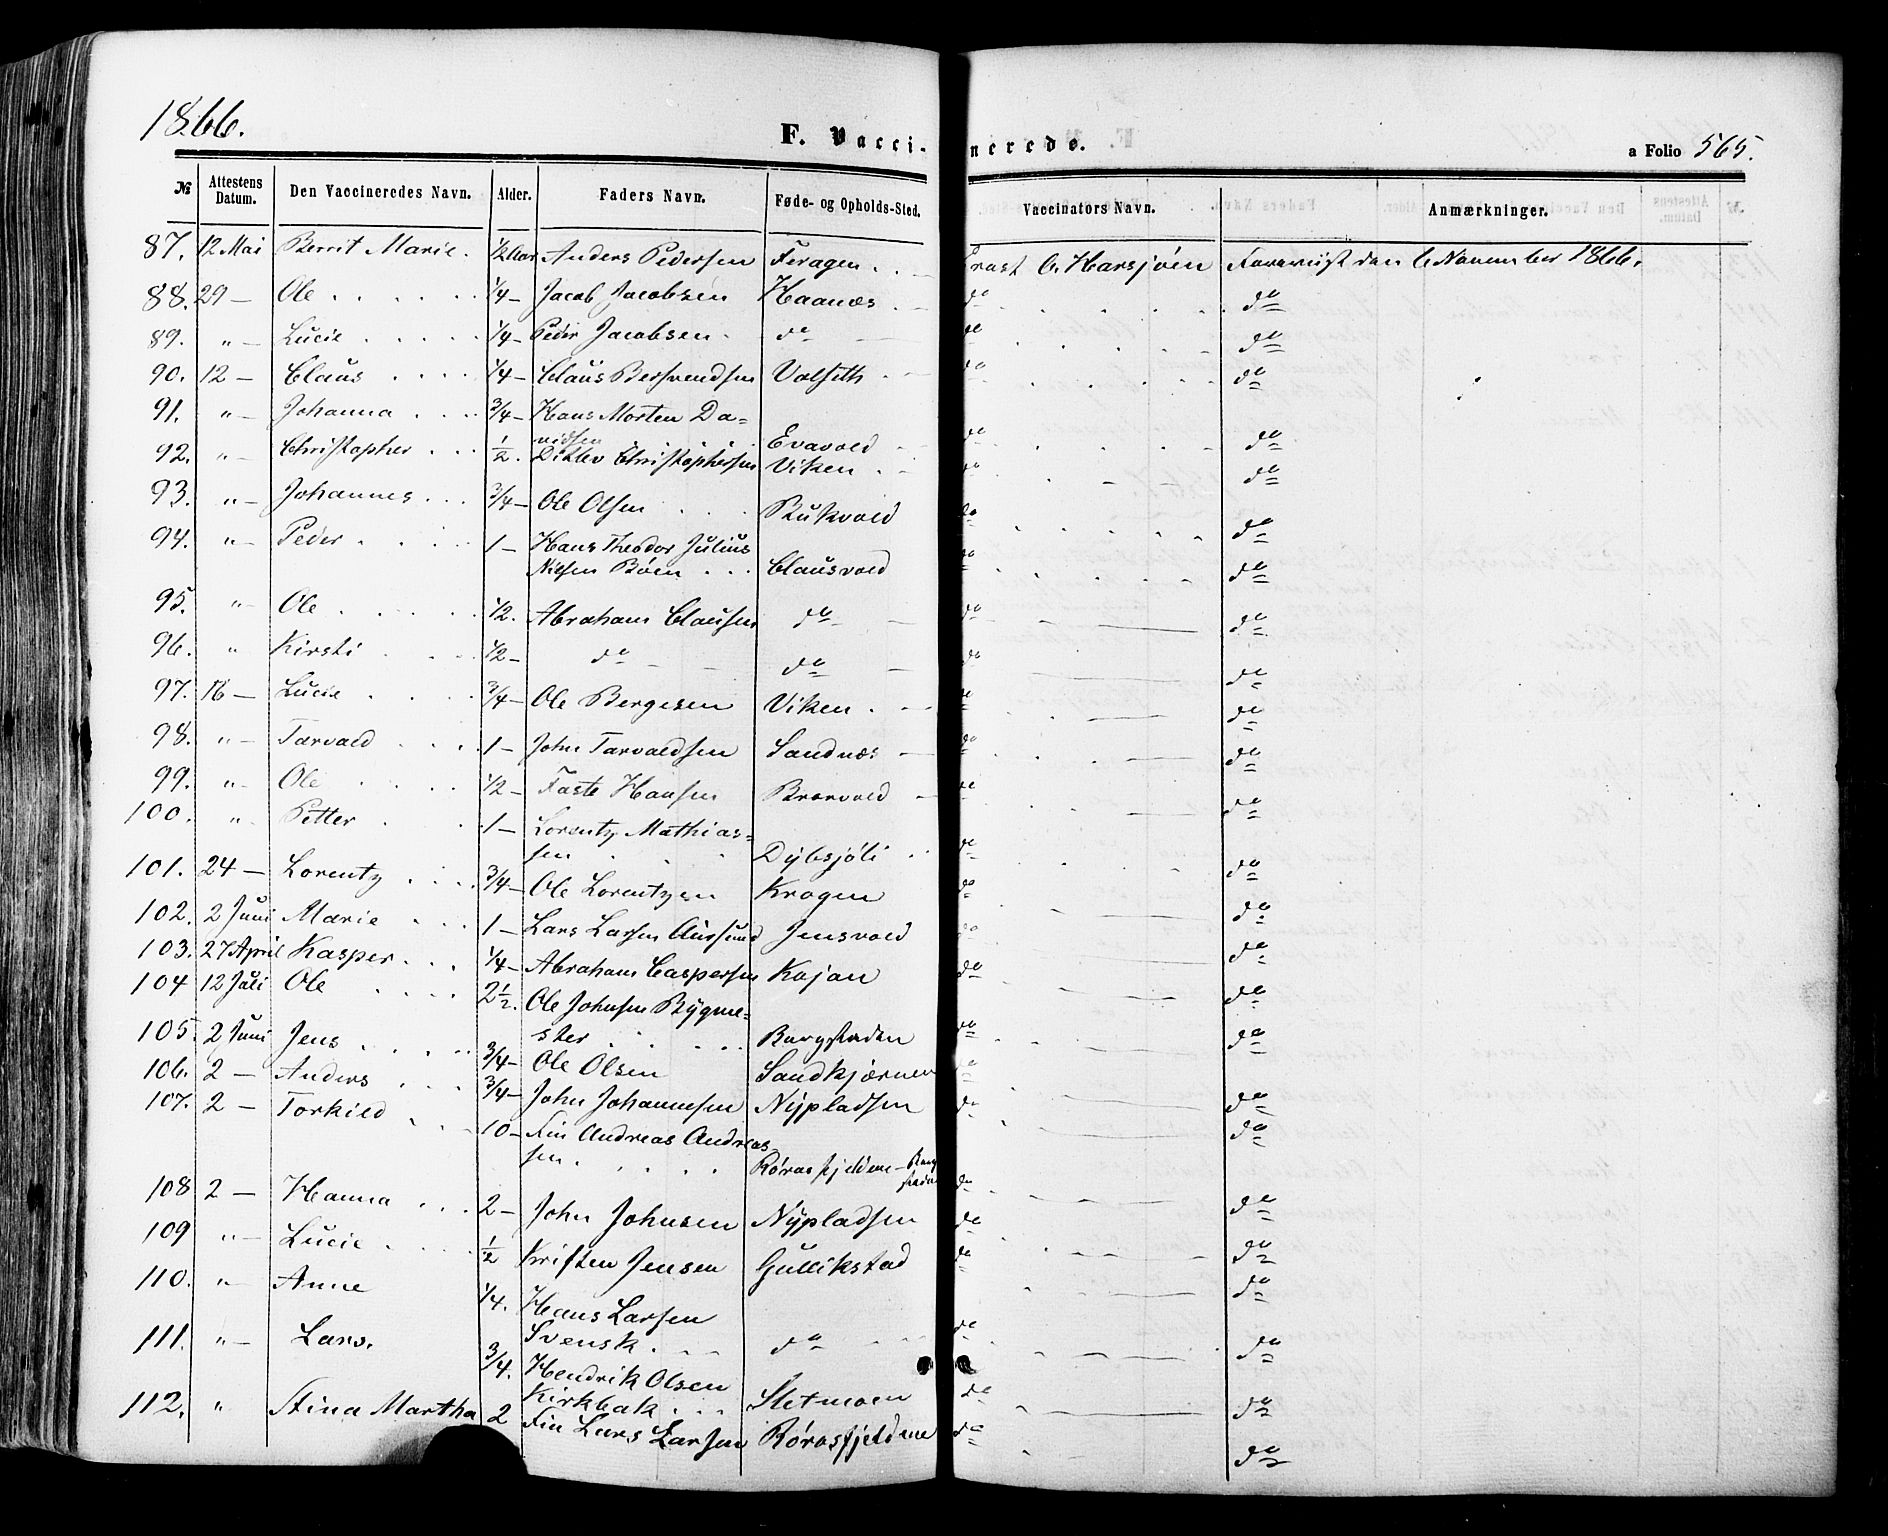 1866.
F. Vaccinerede.
a Folio 565.
№ Attestens Datum. Den Vaccineredes Navn. Alder. Faders Navn. Føde- og Opholds-Sted. Vaccinators Navn. Anmærkninger.
87. 12 Mai Berrit Marie. 1/2 Aar Anders Pedersen Feragen. O. Harsjøen Foreviist den 6 November 1866.
88. 29 — Ole 1/4 — Jacob Jacobsen Haanæs do do
89. " — Lucie 1/4 — Peder Jacobsen do do do
90. 12 — Claus 1/4 — Claus Bersvendsen Valseth do do
91. " — Johanna 3/4 — Hans Morten Da=
vidsen Evavold do do
92. " — Christopher 1/2. Ditlev Christophersen Viken do do
93. " — Johannes 3/4 — Ole Olsen Rukvold do do
94. " — Peder 1 — Hans Theodor Julius
Nilsen Bøen Clausvold do do
95. " — Ole 1/2. Abraham Clausen do do do
96. " Kirsti 1/2 — do do do do
97. 16 — Lucie 3/4 — Ole Bergesen Viken do do
98. " — Tarvald 1 — John Tarvaldsen Sandnæs do do
99. " — Ole 1/2 — Faste Hansen Brorvold do do
100. " Petter 1 — Lorentz Mathias=
sen Dybsjøli do do
101. 24 — Lorentz 3/4 — Ole Lorentzen Krogen do do
102. 2 Juni Marie 1 — Lars Larsen Aursund Jensvold do do
103. 27 April Kasper 1/4 — Abraham Caspersen Kojan do do
104 12 Juli Ole 2 1/2. Ole Johnsen Bygme=
ster Bergstaden do do
105. 2 Juni Jens 3/4 — Ole Olsen Sandkjærnen do
106. 2 — Anders 3/4 — John Johannesen Nypladsen do do
107. 2 — Torkild 10 — Fin Andreas Andreas
sen. Rørosfjeldene — Berg
staden do do
108 2 — Hanna 2 — John Johnsen Nypladsen do do
109 " — Lucie 1/2 Kristen Jensen Gullikstad do do
110. " Anne 1/4. Hans Larsen
Svensk do do do
111. " — Lars. 3/4. Hendrik Olsen
Kirkbak Sletmoen do do
112. " Stina Martha 2 Fin Lars Larsen Rørosfjeldene do do